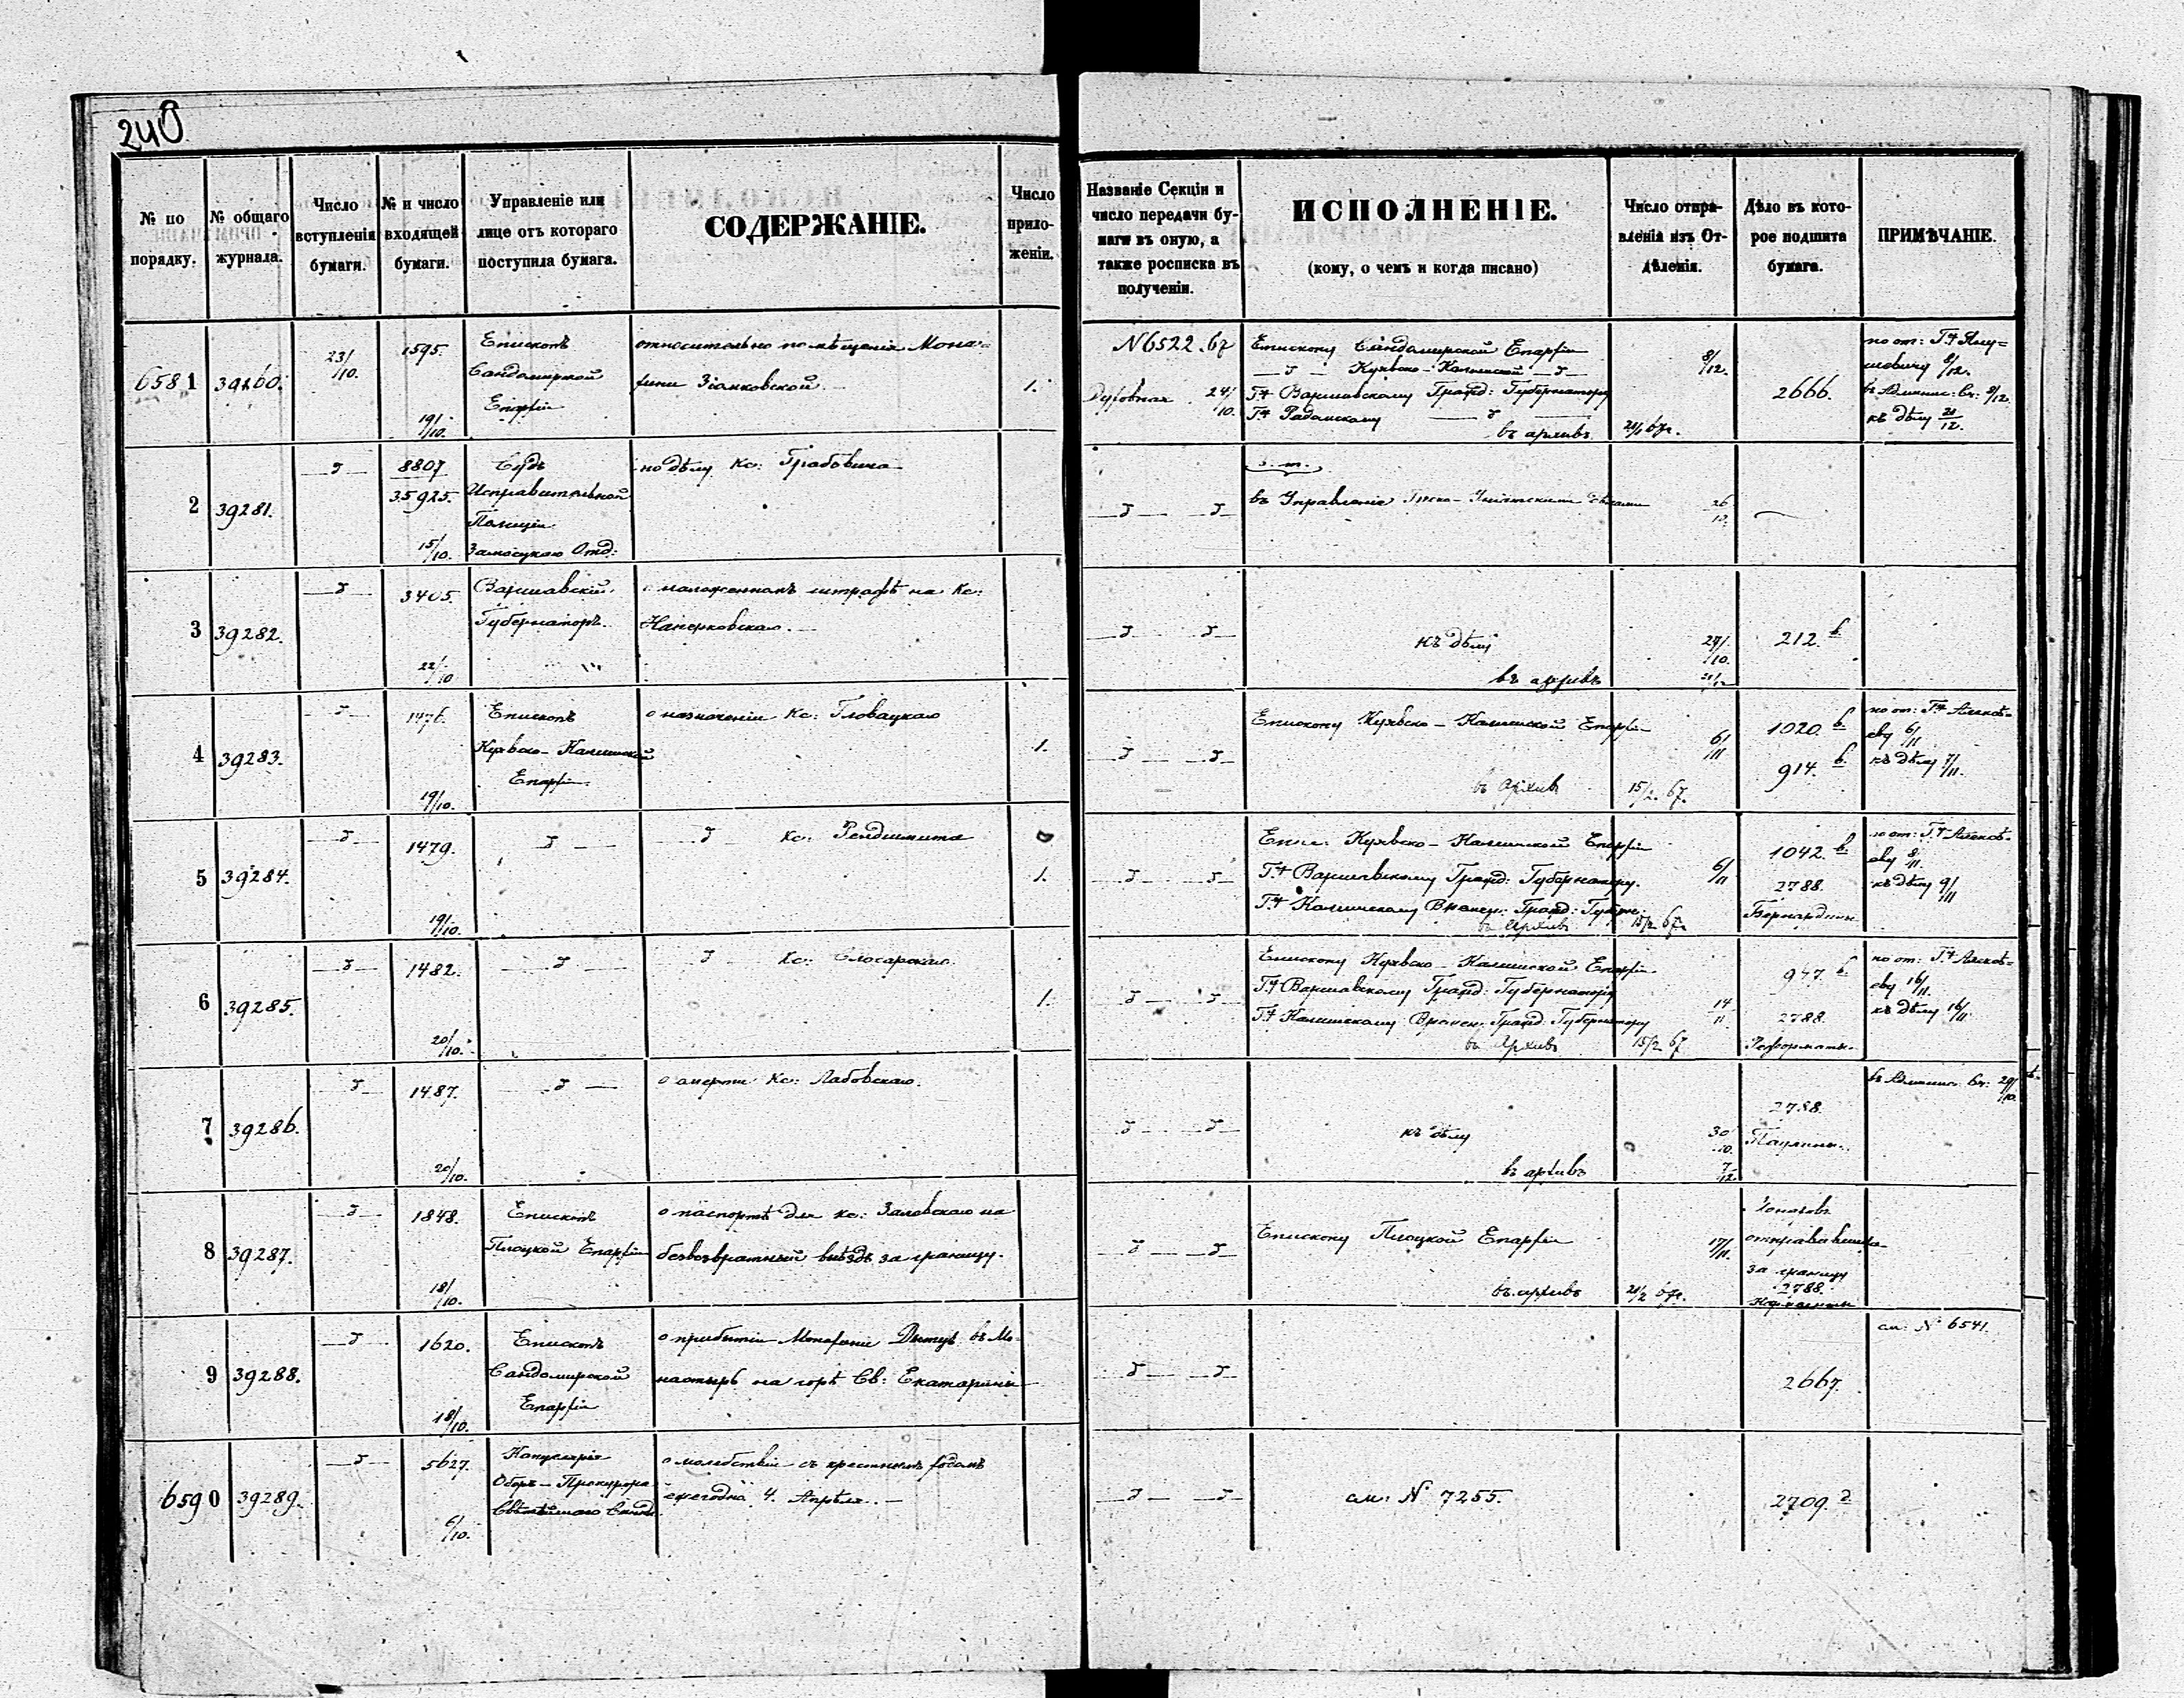 240
№ по порядку.
№ общаго журнала.
Число вступленія бумаги.
№ и число входящей бумаги.
Управленіе или лице отъ котораго поступила бумага.
СОДЕРЖАНІЕ.
Число приложеніи.
Названіе Секціи и число передачи бумаги въ оную, а также росписка въ полученіи.
ИСПОЛНЕНІЕ.
(кому, о чемъ и когда писано)
Число отправленія изъ Отдѣленія.
Дѣло въ которое подшита бумага.
ПРИМѢЧАНІЕ.
6581 39260. 23/10. 1595. 19/10.
Епископъ
Сандомирской
Епархіи
относительно помѣщенія Мона-
хини Зіомковской.
1.
N 6522. 67
Духовная 24/10.
Епископу Сандомирской Епархіи
Куявско-Калишской
Г. Варшавскому Гражд: Губернатору
Г. Радомскому
въ архивъ
8/12.
2666.
къ дѣлу 21/12.
2 39281. 8807 35925. 15/10.
Судъ
Исправительной
Полиціи
Замосцкаго Отд:
по дѣлу Кс: Грабовича
въ Управленіе Греко-Уніятскими
26/10.
3 39282. 3405. 22/10
Варшавскій
Губернаторъ.
о наложенномъ штрафѣ на Кс:
къ дѣлу
въ архивъ
27/10.
212. b
4 39283. 1476. 19/10.
Епископъ
Куявско-Калишской
Епархіи.
о назначеніи Кс: Гловацкаго
1.
Епископу Куявско-Калишской Епархіи
въ Архивъ
6/11
15/2 67.
1020. b
914. b
къ дѣлу 7/11.
5 39284. 1479. 19/10.
Кс:
1.
Епис: Куявско-Калишской Епархіи
Г. Варшавскому Гражд: Губернатору.
Г. Калишскому Времен: Гражд: Губерн:
въ Архивъ
6/11
15/2 67.
1042. b
2788.
Бернардины
къ дѣлу 9/11
6 39285. 1482. 20/10.
Кс: Слосарскаго.
1.
Епископу Куявско-Калишской Епархіи
Г. Варшавскому Гражд: Губернатору
Г. Калишскому Времен: Гражд: Губернатору
въ Архивъ
14/11
15/2 67
947. b
2788
Реформаты.
къ дѣлу 16/11
7 39286. 1487. 20/10.
о смерти Кс: Лабовскаго.
къ дѣлу
въ архивъ
30/10.
7/12.
2788.
Паулины.
8 39287. 1848. 18/10.
Епископъ
Плоцкой Епархіи
о паспортѣ для кс: Заловскаго на
безвозвратный выѣздъ за границу.
Епископу Плоцкой Епархіи
въ архивъ
17/11.
за границу
2788.
9 39288. 1620. 18/10.
Епископъ
Сандомирской
Епархіи
о прибытіи Монахини въ Мо-
настырь на горѣ Св: Екатерины
2667.
см: N 6541.
6590 39289. 5627. 6/10.
Канцелярія
Оберъ-Прокурора
Святѣйшаго Синода
о молебствіи съ крестнымъ ходомъ
ежегодно 4. Апрѣля.
см: N 7255.
2709. d